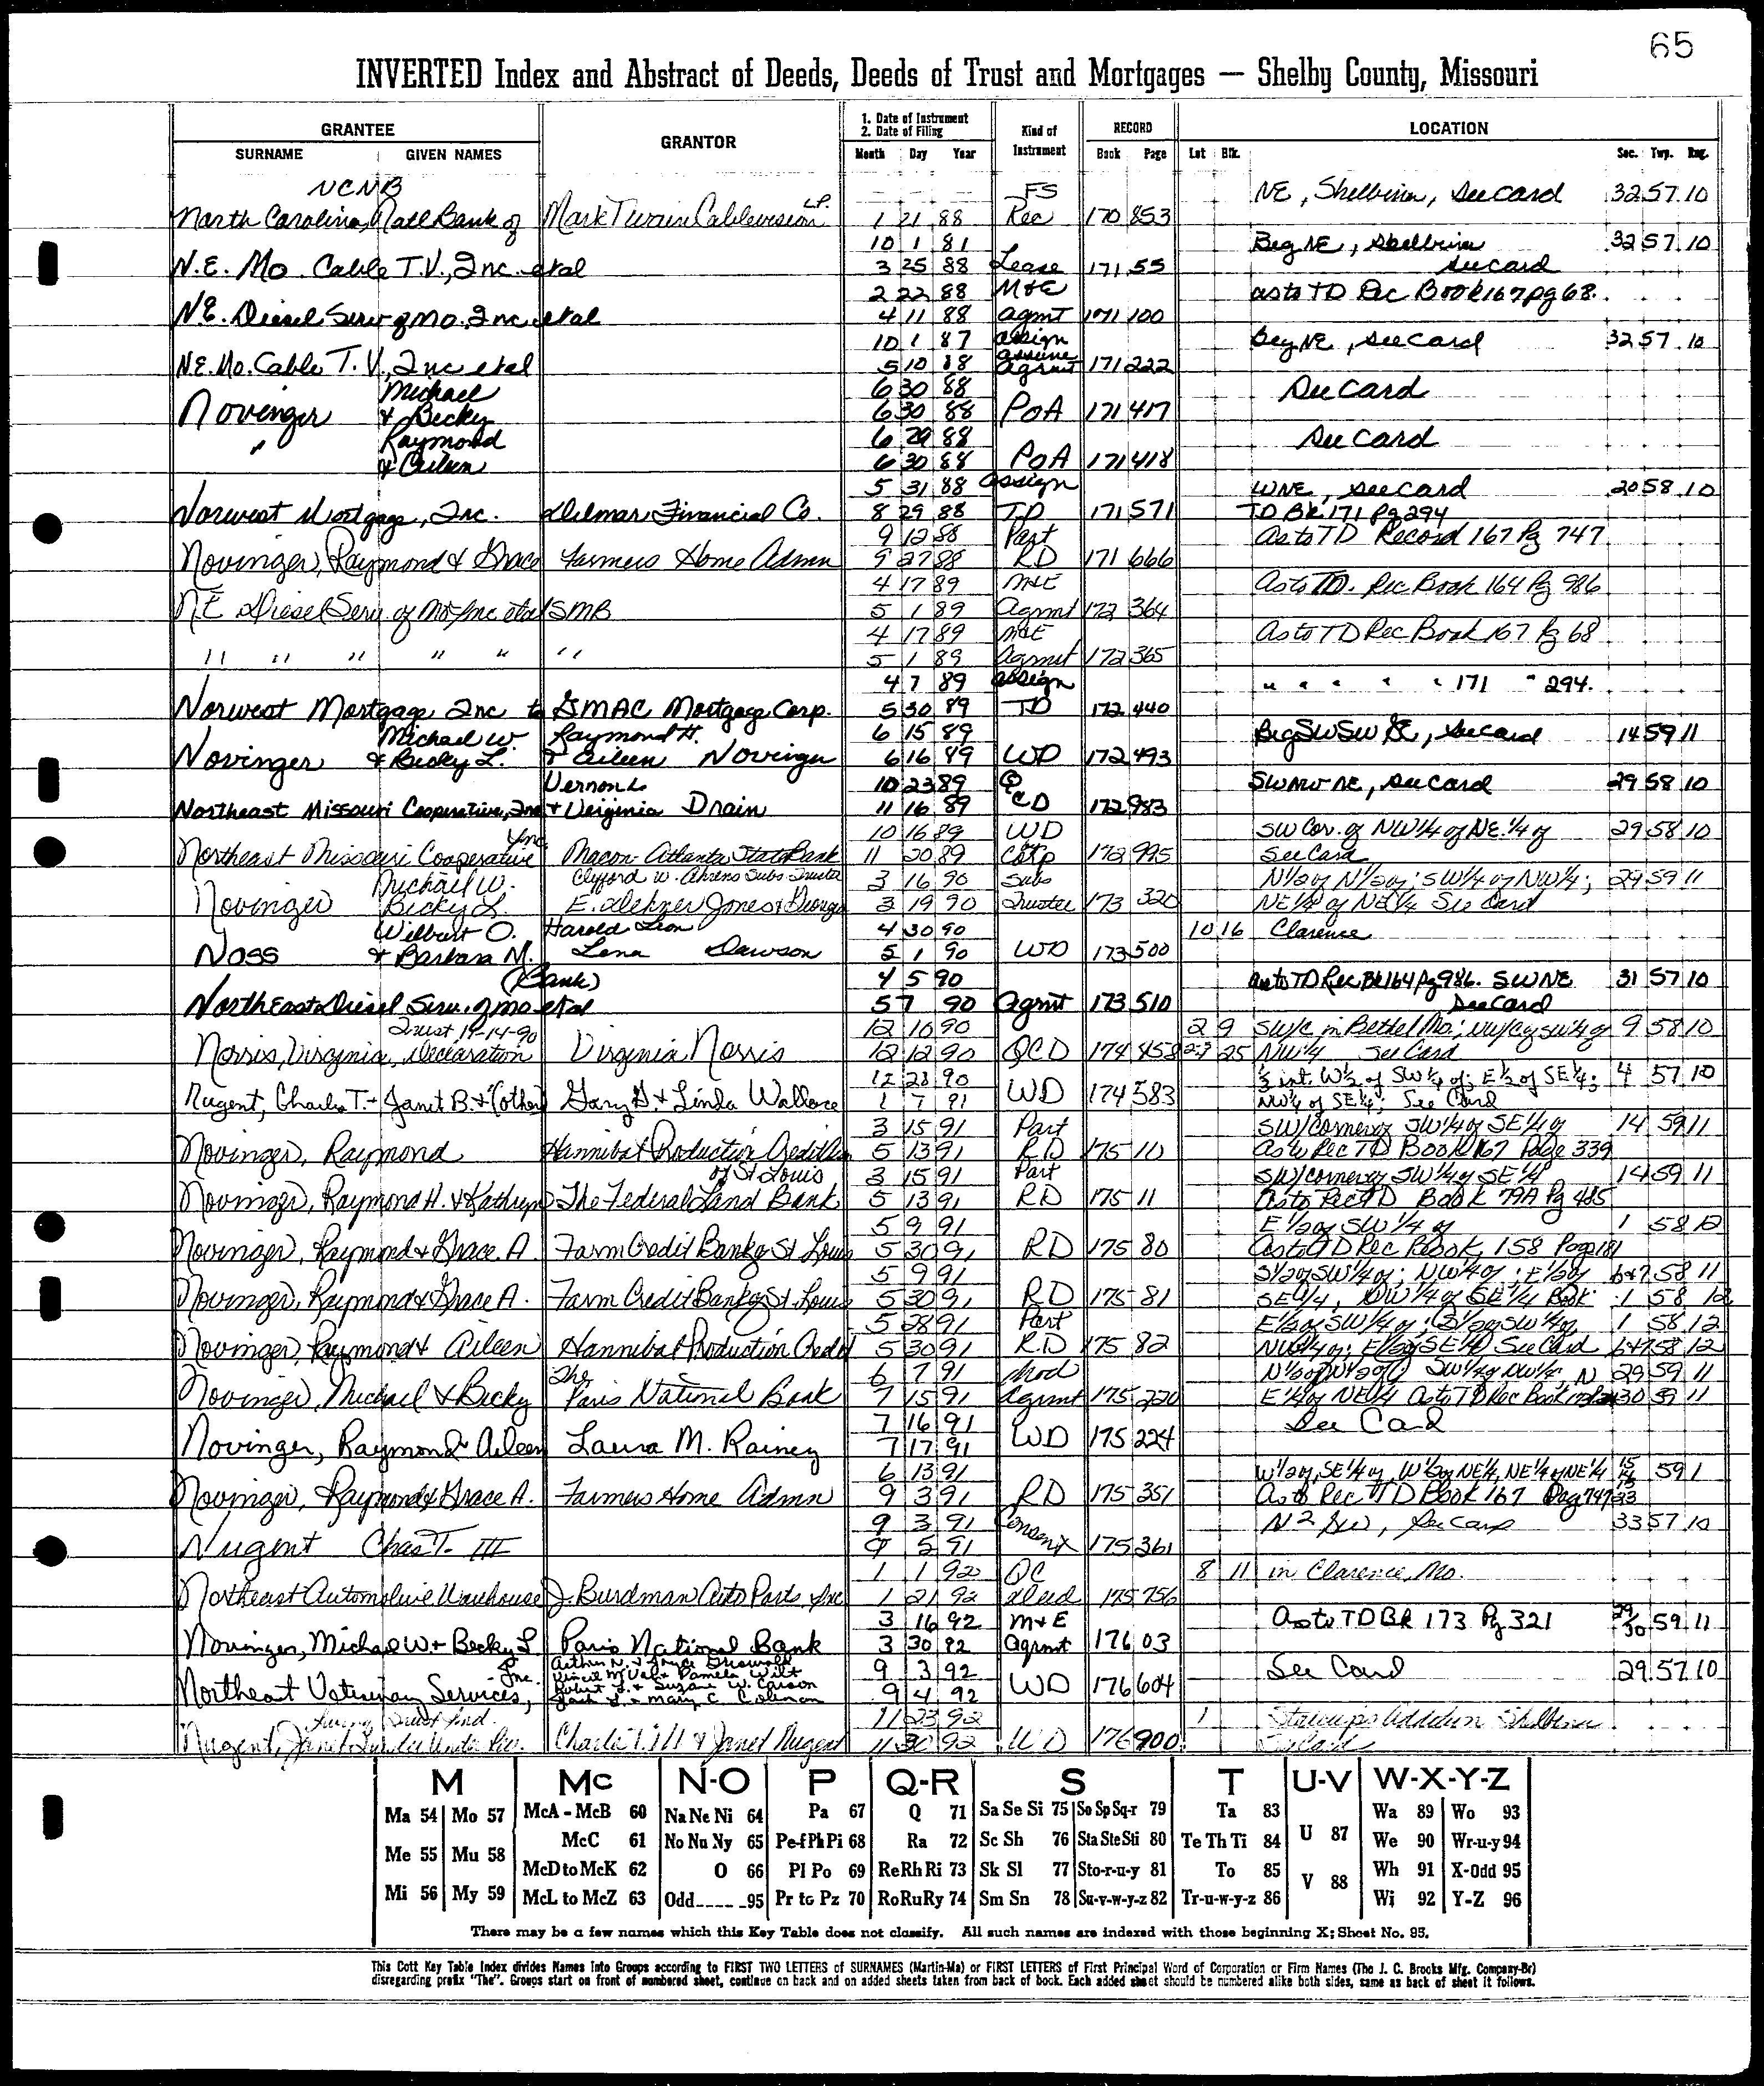 65
INVERTED Index and Abstract of Deeds, Deeds of Trust and Mortgages — Shelby County, Missouri
GRANTEE GRANTOR 1. Date of Instrument 2. Date of Filing Kind of Instrument RECORD LOCATION
SURNAME GIVEN NAMES Month Day Year Book Page Lot Blk. Sec. Twp. Rng.
NCNB FS NE, Shelbina, See Card 32 57 10
North Carolina, Natl Bank of Mark Twain Cablevision L.P. 1 21 88 Rec 170 853
10 1 81 Beg NE, Shelbina 32 57 10
N.E. Mo. Cable T.V., Inc. etal 3 25 88 Lease 171 55 See card
2 22 88 M&E as to TD Rec Book 167 pg 68.
N.E. Diesel Serv of Mo. Inc etal 4 11 88 agmt 171 100
10 1 87 assign Beg NE, See Card 32 57 10
N.E. Mo. Cable T.V., Inc etal 5 10 88 assume agrmt 171 222
Michael 6 30 88 See Card
Novinger & Becky 6 30 88 PoA 171 417
" Raymond 6 29 88 See Card
& Eileen 6 30 88 PoA 171 418
5 31 88 assign WNE, See card 20 58 10
Norwest Mortgage, Inc. Delmar Financial Co. 8 29 88 TD 171 571 TD Bk 171 Pg 294
9 12 88 Part As to TD Record 167 Pg 747
Novinger, Raymond & Grace Farmers Home Admn 9 27 88 RD 171 666
4 17 89 M&E As to TD. Rec Book 164 Pg 986
NE Diesel Serv. of Mo Inc etal SMB 5 1 89 Agmt 172 364
4 17 89 M&E As to TD Rec Book 167 Pg 68
" " " " " " 5 1 89 Agmt 172 365
4 7 89 assign " " " " " 171 " 294.
Norwest Mortgage Inc to GMAC Mortgage Corp. 5 30 89 TD 172 440
Michael W. Raymond H. 6 15 89 Beg SW SW SE, See Card 14 59 11
Novinger & Becky L. & Eileen Novinger 6 16 89 WD 172 493
Vernon L 10 23 89 Q SW NW NE, See Card 29 58 10
Northeast Missouri Cooperative, Inc & Virginia Drain 11 16 89 CD 172 983
Inc 10 16 89 WD SW Cor. of NW 1/4 of NE. 1/4 of 29 58 10
Northeast Missouri Cooperative Macon Atlanta State Bank 11 20 89 Corp 172 995 See Card
Michael W. Clifford W. Ahrens Subs Trustee 3 16 90 Subs N 1/2 of N 1/2 of; SW 1/4 of NW 1/4; 29 59 11
Novinger Becky L. E. Jones & 3 19 90 Trustee 173 320 NE 1/4 of NE 1/4 See Card
Wilbert O. Harold Leon 4 30 90 10 16 Clarence
Noss & Barbara M. Lena Dawson 5 1 90 WD 173 500
(Bank) 4 5 90 as to TD Rec Bk 164 Pg 986. SW NE 31 57 10
NorthEast Diesel Serv. of Mo etal 5 7 90 agmt 173 510 See Card
Trust 12 10 90 2 9 SW/C in Bethel Mo.; NW/C of SW 1/4 of 9 58 10
Norris, Virginia, Declaration Virginia Norris 12 12 90 QCD 174 458 25 NW 1/4 See Card
12 28 90 1/2 int. W 1/2 of SW 1/4 of; E 1/2 of SE 1/4; 4 57 10
Nugent, Charles T. + Janet B. + (other) Gary G. + Linda Wallace 1 7 91 WD 174 583 NW 1/4 of SE 1/4; See Card
3 15 91 Part SW/Corner of SW 1/4 of SE 1/4 of 14 59 11
Novinger, Raymond Hannibal Production Credit 5 13 91 RD 175 10 As to Rec TD Book 167 Page 339
of St Louis 3 15 91 Part SW/Corner of SW 1/4 of SE 1/4 14 59 11
Novinger, Raymond H. & Kathryn The Federal Land Bank 5 13 91 RD 175 11 As to Rec TD Book 79A Pg 485
5 9 91 E 1/2 of SW 1/4 of 1 58 12
Novinger, Raymond & Grace A. Farm Credit Bank of St Louis 5 30 91 RD 175 80 As to TD Rec Book 158 Page 181
5 9 91 S 1/2 of SW 1/4 of; NW 1/4 of; E 1/2 of 6&7 58 11
Novinger, Raymond & Grace A. Farm Credit Bank of St. Louis 5 30 91 RD 175 81 SE 1/4, NW 1/4 of SE 1/4 Book 1 58 12
5 28 91 Part E 1/2 of SW 1/4 of; S 1/2 of SW 1/4 of 1 58 12
Novinger, Raymond & Aileen Hannibal Production Credit 5 30 91 RD 175 82 NW 1/4 of; E 1/2 of SE 1/4 See Card 6&7 58 12
The 6 7 91 Mod N 1/2 of N 1/2 of SW 1/4 of NW 1/4, N 29 59 11
Novinger, Michael & Becky Paris National Bank 7 15 91 Agrmt 175 220 E 1/4 of NE 1/4 As to TD Rec Book 30 59 11
7 16 91 See Card
Novinger, Raymond & Aileen Laura M. Rainey 7 17 91 WD 175 224
6 13 91 W 1/2 of, SE 1/4 of, W 1/2 of NE 1/4, NE 1/4 of NE 1/4 15 59 1
Novinger, Raymond & Grace A. Farmers Home Admn 9 3 91 RD 175 351 As to Rec TD Book 167 Page 747
9 3 91 Consent N 2 SW, See Card 33 57 10
Nugent Chas T. III 9 5 91 175 361
1 1 92 QC 8 11 in Clarence, Mo.
Northeast Automotive Warehouse J. Burdman Auto Parts, Inc 1 21 92 Deed 175 756
3 16 92 M+E As to TD BK 173 Pg 321 29/30 59 11
Novinger, Michael W. + Becky L Paris National Bank 3 30 92 agrmt 176 03
Inc. 9 3 92 See Card 29 57 10
Northeast Veterinary Services, 9 4 92 WD 176 604
Living Trust 11 23 92 1 Addition Shelbina
Nugent, Janet Charles T. III & Janet Nugent 11 30 92 WD 176 900 See Card
M Mc N-O P Q-R S T U-V W-X-Y-Z
Ma 54 Mo 57 McA - McB 60 Na Ne Ni 64 Pa 67 Q 71 Sa Se Si 75 So Sp Sq-r 79 Ta 83 U 87 Wa 89 Wo 93
Me 55 Mu 58 McC 61 No Nu Ny 65 Pe-f Ph Pi 68 Ra 72 Sc Sh 76 Sta Ste Sti 80 Te Th Ti 84 We 90 Wr-u-y 94
McD to McK 62 O 66 Pl Po 69 Re Rh Ri 73 Sk Sl 77 Sto-r-u-y 81 To 85 V 88 Wh 91 X-Odd 95
Mi 56 My 59 McL to McZ 63 Odd 95 Pr to Pz 70 Ro Ru Ry 74 Sm Sn 78 Su-v-w-y-z 82 Tr-u-w-y-z 86 Wi 92 Y-Z 96
There may be a few names which this Key Table does not classify. All such names are indexed with those beginning X; Sheet No. 95.
This Cott Key Table Index divides Names Into Groups according to FIRST TWO LETTERS of SURNAMES (Martin-Ma) or FIRST LETTERS of First Principal Word of Corporation or Firm Names (The J. C. Brooks Mfg. Company-Br)
disregarding prefix "The". Groups start on front of numbered sheet, continue on back and on added sheets taken from back of book. Each added sheet should be numbered alike both sides, same as back of sheet it follows.